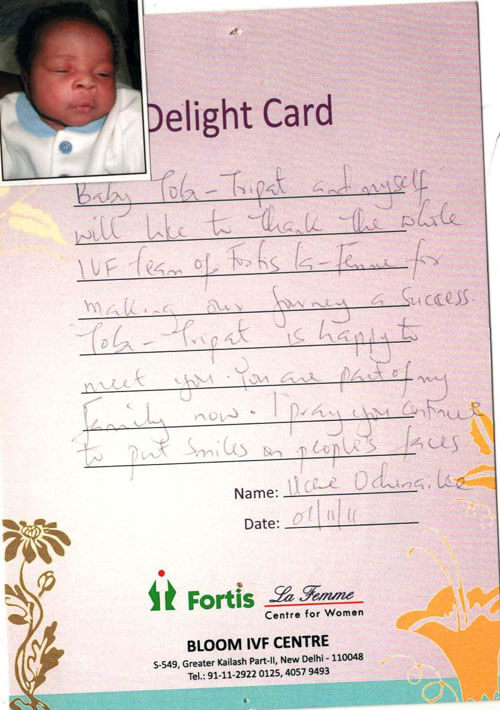 Delight Card
Baby Tobe-Tripat and myself
will like to thank the whole
IVF Team of Fortis la-Femme for
making our journey a success.
Tobe-Tripat is happy to
meet you. You are part of my
family now. I pray you continue
to put smiles on people's faces
Name:
Date: 01/11/11
Fortis La Femme
Centre for Women
BLOOM IVF CENTRE
S-549, Greater Kailash Part-II, New Delhi - 110048
Tel.: 91-11-2922 0125, 4057 9493